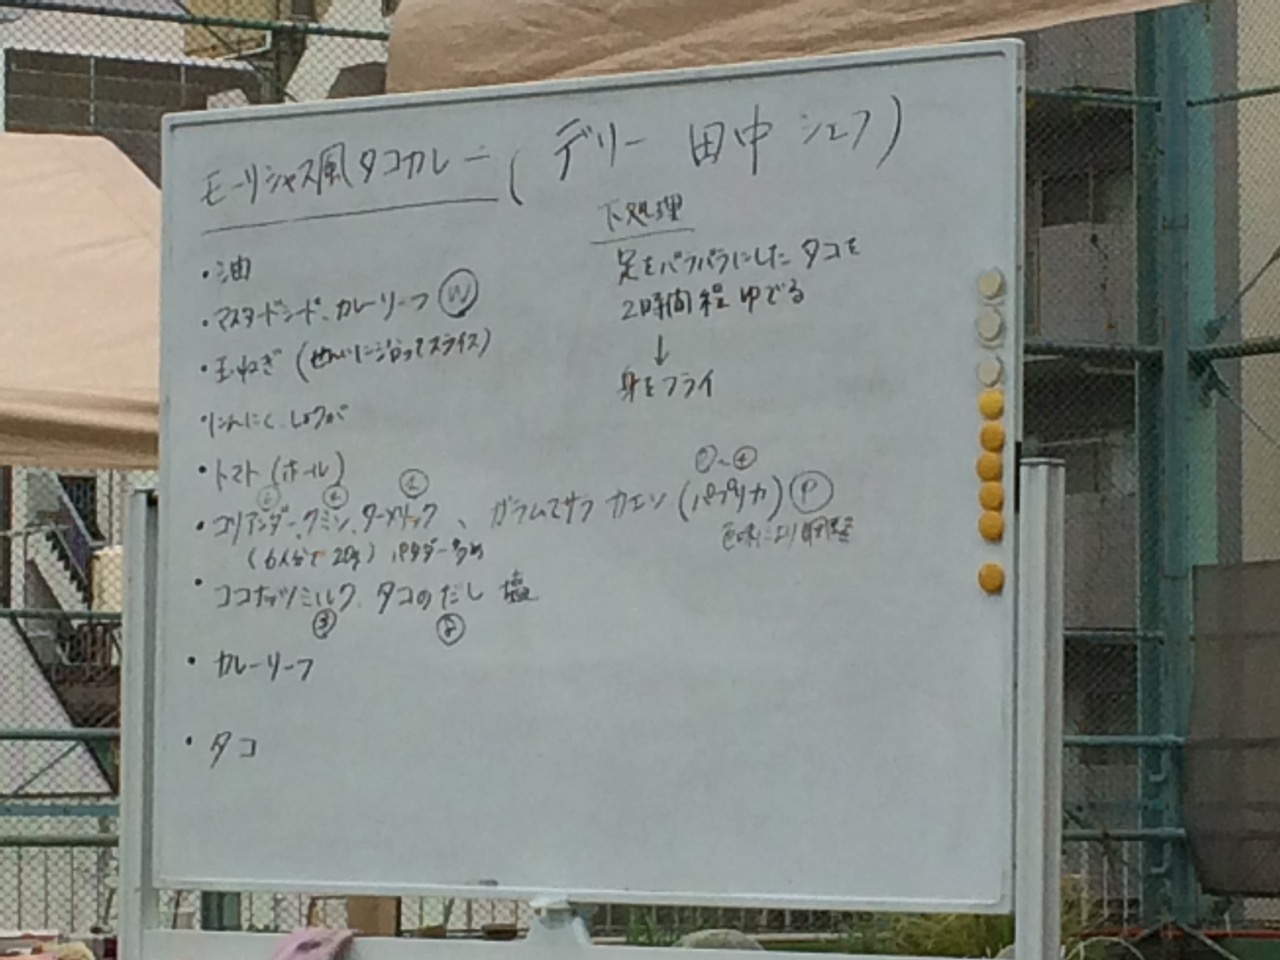 モーリシャス風タコカレー (デリー 田中シェフ)
・油
・マスタードシード、カレーリーフ Ⓦ
・玉ねぎ (せんいに沿ってスライス)
・にんにく、しょうが
・トマト (ホール)
・コリアンダー、クミン、ターメリック、ガラムマサラ カエン (パプリカ) Ⓟ
(6人分で20g) パウダー多め
・ココナッツミルク、タコのだし 塩
・カレーリーフ
・タコ
下処理
足をバラバラにしたタコを
2時間程ゆでる
↓
身をフライ
①~④
色味により調整